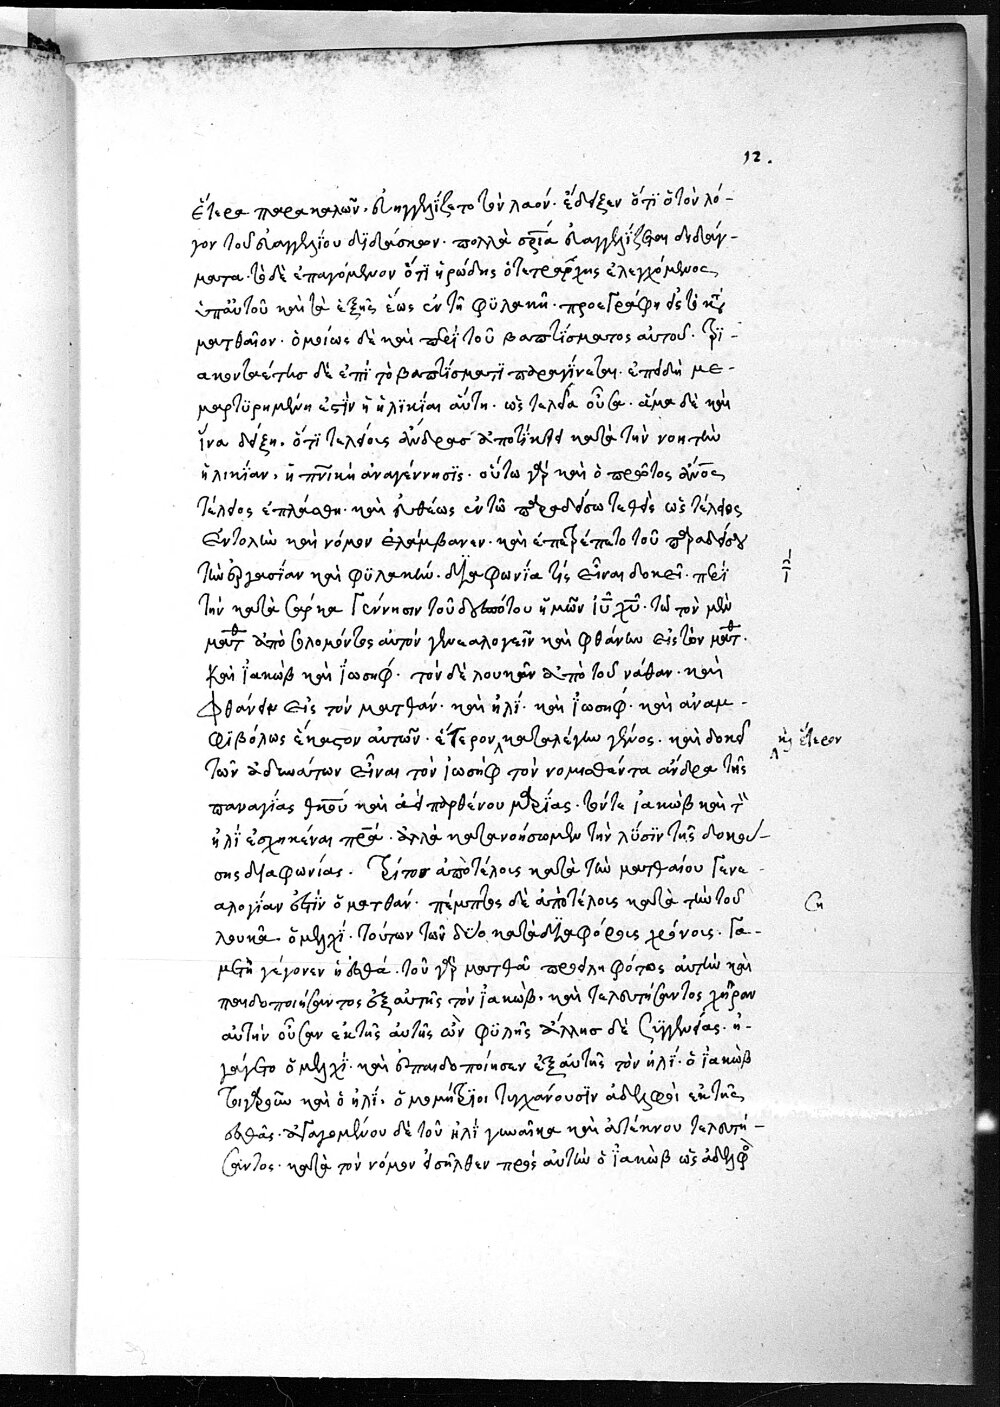 12.
ἕτερα παρακαλῶν, εὐηγγελίζετο τὸν λαόν· ἔδειξεν ὅτι ὁ τὸν λό-
γον τοῦ εὐαγγελίου διδάσκων· πολλὰ σρία εὐαγγελίζεται διδάγ-
ματα· τὸ δὲ ἐπαγόμενον ὅτι ἡρώδης ὁ τετράρχης ἐλεγχόμενος
ὑπ' αὐτοῦ καὶ τὰ ἑξῆς ἕως ἐν τῆ φυλακῆ· προεγράφη εἰς τὸ κατὰ
ματθαῖον· ὁμοίως δὲ καὶ περὶ τοῦ βαπτίσματος αὐτοῦ· τρι-
ακονταέτης δὲ ἐπὶ τὸ βαπτίσματι παραγίνεται· ἐπειδὴ με-
μαρτυρημένη ἐστὶν ἡ ἡλικία αὕτη· ὡς τελεία οὖσα· ἅμα δὲ καὶ
ἵνα δείξη, ὅτι τελείους ἄνδρας ἀποτίκτει κατὰ τὴν νοητὴν
ἡλικίαν, ἡ πνικὴ ἀναγέννησις· οὕτω γὰρ καὶ ὁ πρῶτος ἄνος
τέλειος ἐπλάσθη· καὶ εὐθέως ἐν τῶ παραδείσω τεθεὶς ὡς τέλειος
ἐντολὴν καὶ νόμον ἐλάμβανεν· καὶ ἐπετρέπετο τοῦ παραδείσου
τὴν ἐργασίαν καὶ φυλακήν· διαφωνία τίς εἶναι δοκεῖ· περὶ
τὴν κατὰ σάρκα γέννησιν τοῦ δεσπότου ἡμῶν ἰῦ χῦ· τῶ τὸν μὲν
ματθ ἀπὸ σολομόντος αὐτὸν γενεαλογεῖν καὶ φθάνειν εἰς τὸν ματθ·
καὶ ἰακὼβ καὶ ἰωσήφ· τὸν δὲ λουκᾶν ἀπὸ τοῦ νάθαν· καὶ
φθάνειν εἰς τὸν ματθάν· καὶ ἡλί· καὶ ἰωσήφ· καὶ ἀναμ-
φιβόλως ἕκαστον αὐτῶν· ἕτερον καταλέγειν γένος· καὶ δοκεῖ
καὶ ἕτερον
τῶν ἀδυνάτων εἶναι τὸν ἰωσὴφ τὸν νομισθέντα ἄνδρα τῆς
παναγίας θκου καὶ ἀειπαρθένου μαρίας· τόν τε ἰακὼβ καὶ τὸν
ἡλὶ ἐσχηκέναι πρα· ἀλλὰ κατανοήσωμεν τὴν λύσιν τῆς δοκού-
σης διαφωνίας· τρίτος ἀπὸ τέλους κατὰ τὴν ματθαίου γενε-
αλογίαν ἐστὶν ὁ ματθάν· πέμπτος δὲ ἀπὸ τέλους κατὰ τὴν τοῦ
λουκᾶ· ὁ μελχί· τούτων τῶν δύο κατὰ διαφόρους χρόνους· γα-
μετὴ γέγονεν ἡ ἐσθά· τοῦ γὰρ ματθὰν προειληφότος αὐτὴν καὶ
παιδοποιήσαντος ἐξ αὐτῆς τὸν ἰακώβ· καὶ τελευτήσαντος χήραν
αὐτὴν οὖσαν ἐκ τῆς αὐτῆς ὢν φυλῆς ἄλλης δὲ συγγενείας· ἠ-
γάγετο ὁ μελχί· καὶ ἐπαιδοποίησεν ἐξ αὐτῆς τὸν ἡλί· ὁ ἰακὼβ
τοιγαροῦν καὶ ὁ ἡλί, ὁμομήτριοι τυγχάνουσιν ἀδελφοὶ ἐκ τῆς
ἐσθάς· ἀγαγομένου δὲ τοῦ ἡλὶ γυναῖκα καὶ ἀτέκνου τελευτή-
σαντος· κατὰ τὸν νόμον εἰσῆλθεν πρὸς αὐτὴν ὁ ἰακὼβ ὡς ἀδελφὸ
ση